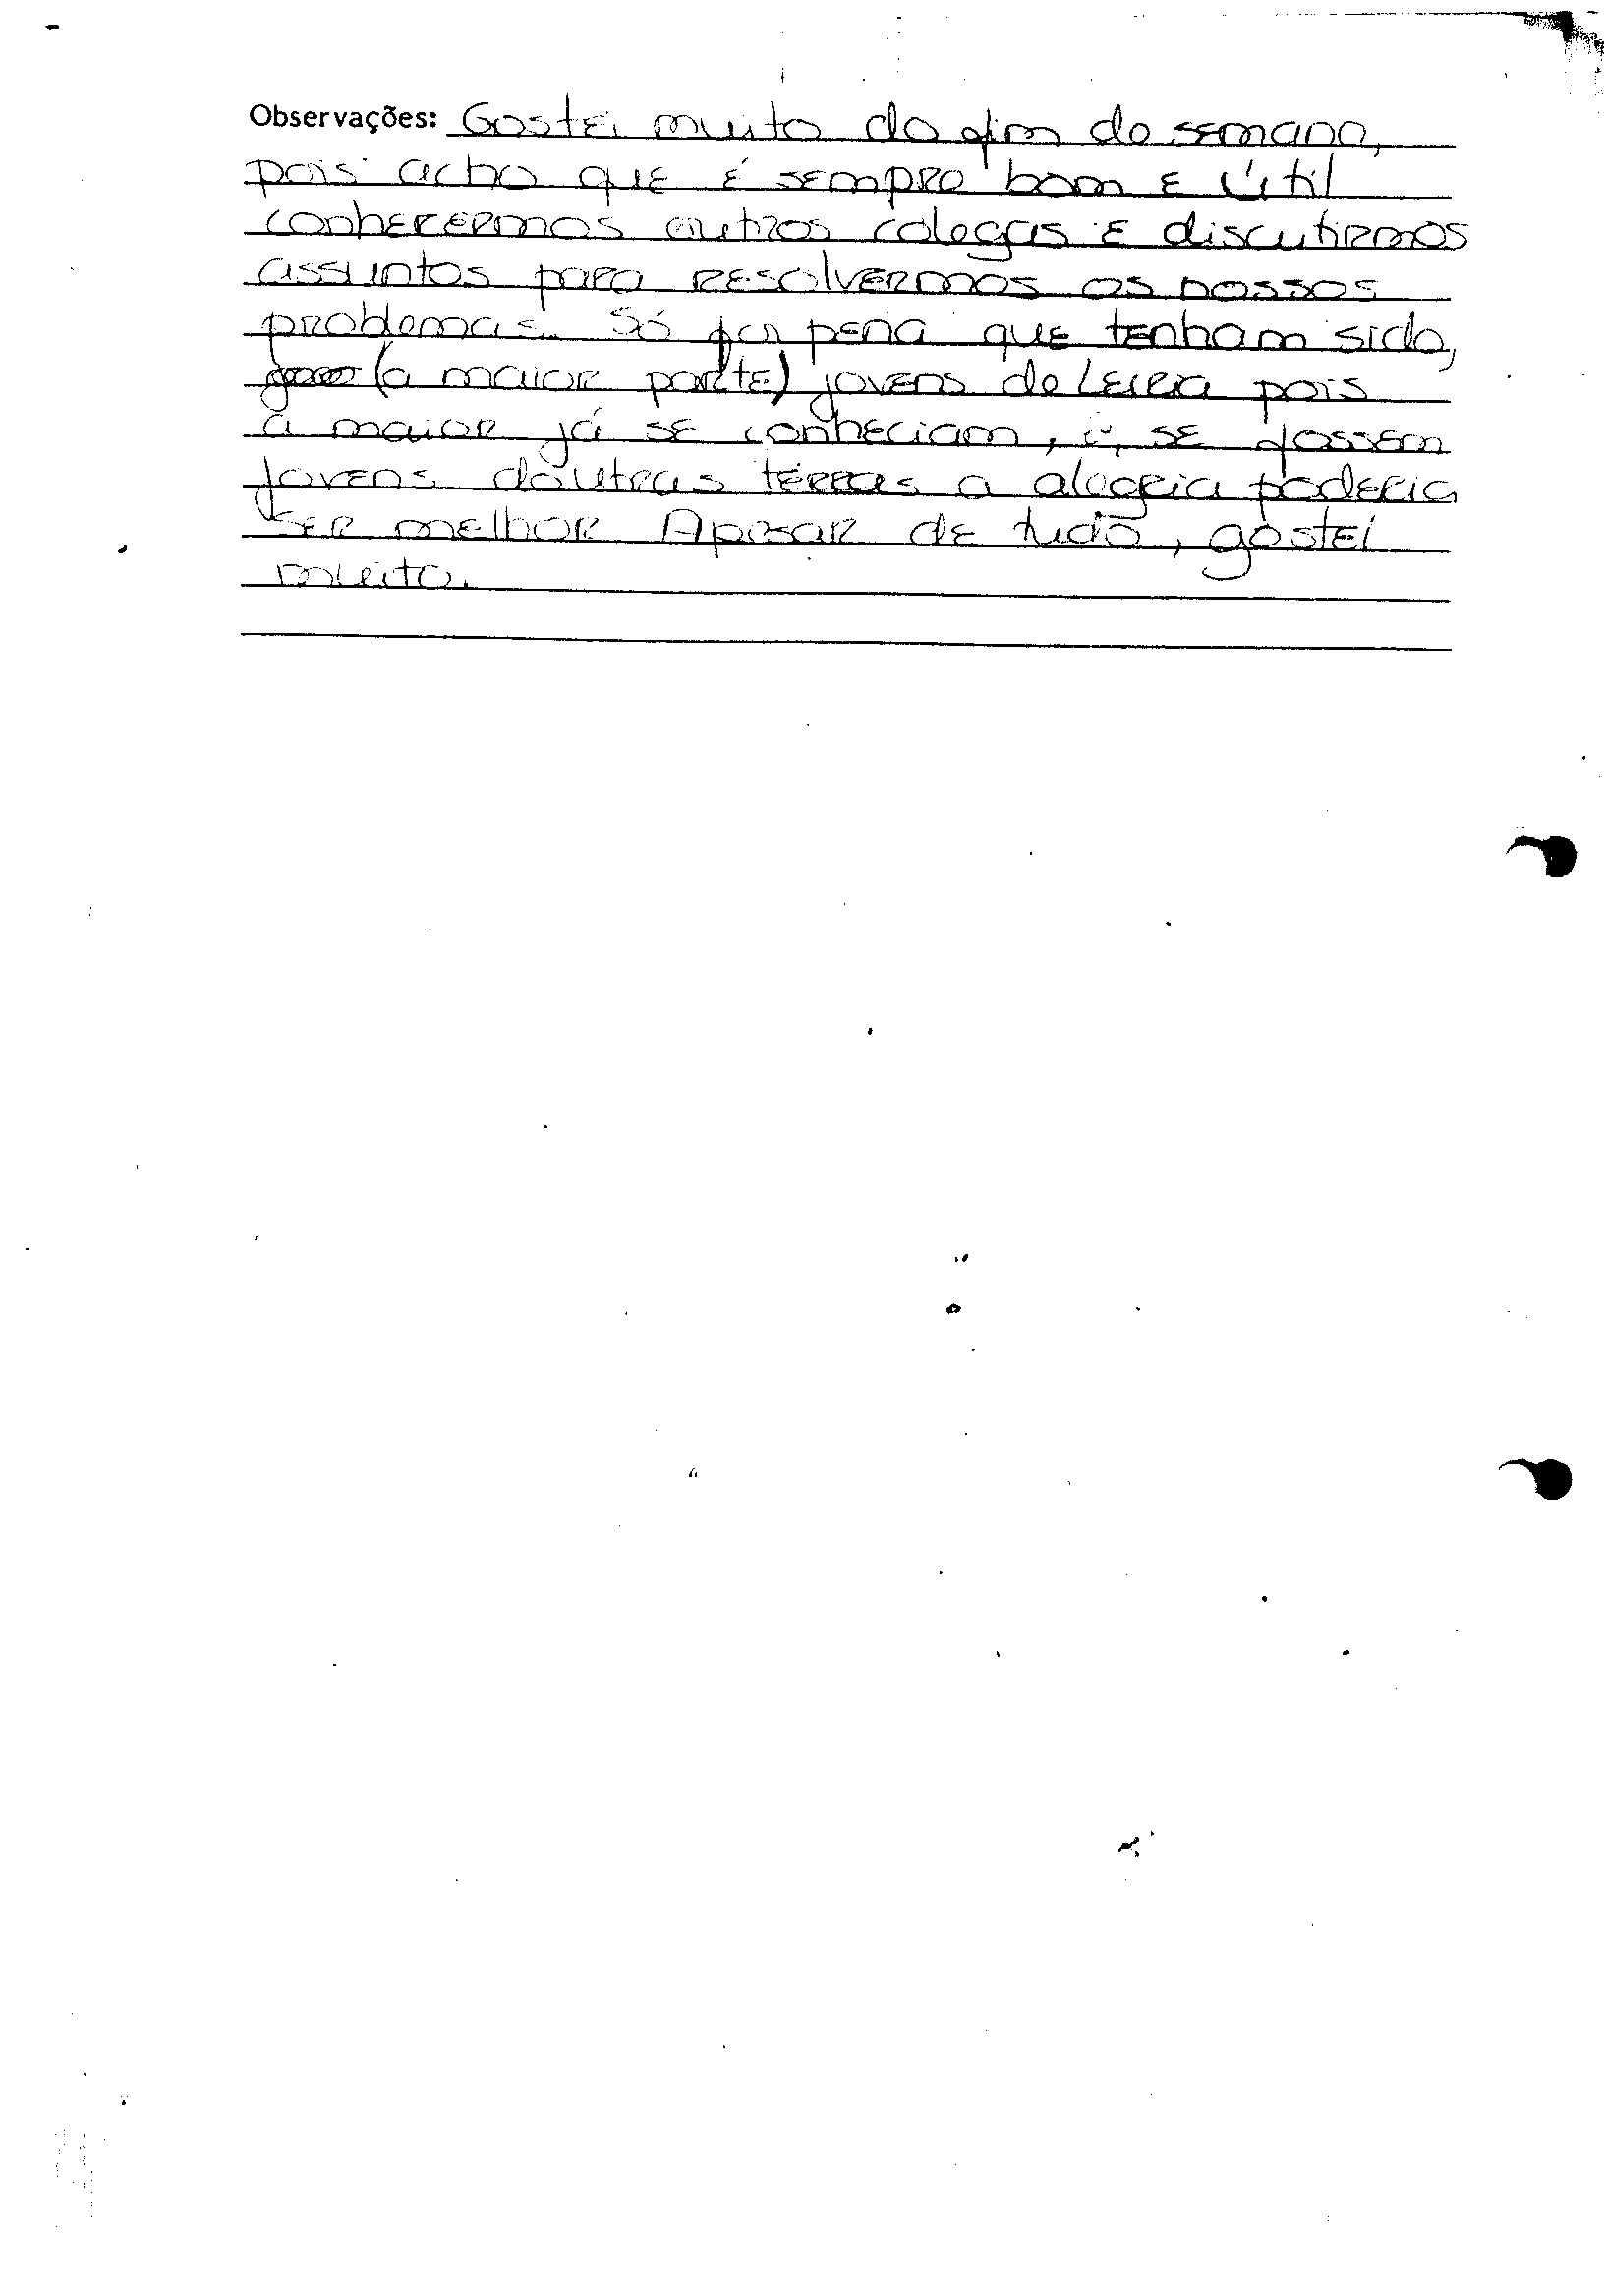 Observações: Gostei muito do fim de semana,
pois acho que é sempre bom e útil
conhecermos outros colegas e discutirmos
assuntos para resolvermos os nossos
problemas. Só foi pena que tenham sido,
(a maior parte) jovens de Leiria pois
a maior já se conheciam, e, se fossem
jovens doutras terras a alegria poderia
ser melhor Apesar de tudo, gostei
muito.